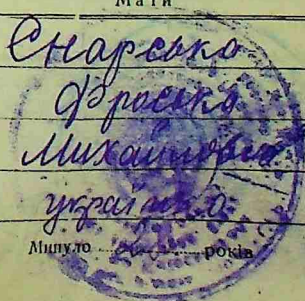 Мати
Єнарська
Фроська
Михайлівна
українка
Минуло років